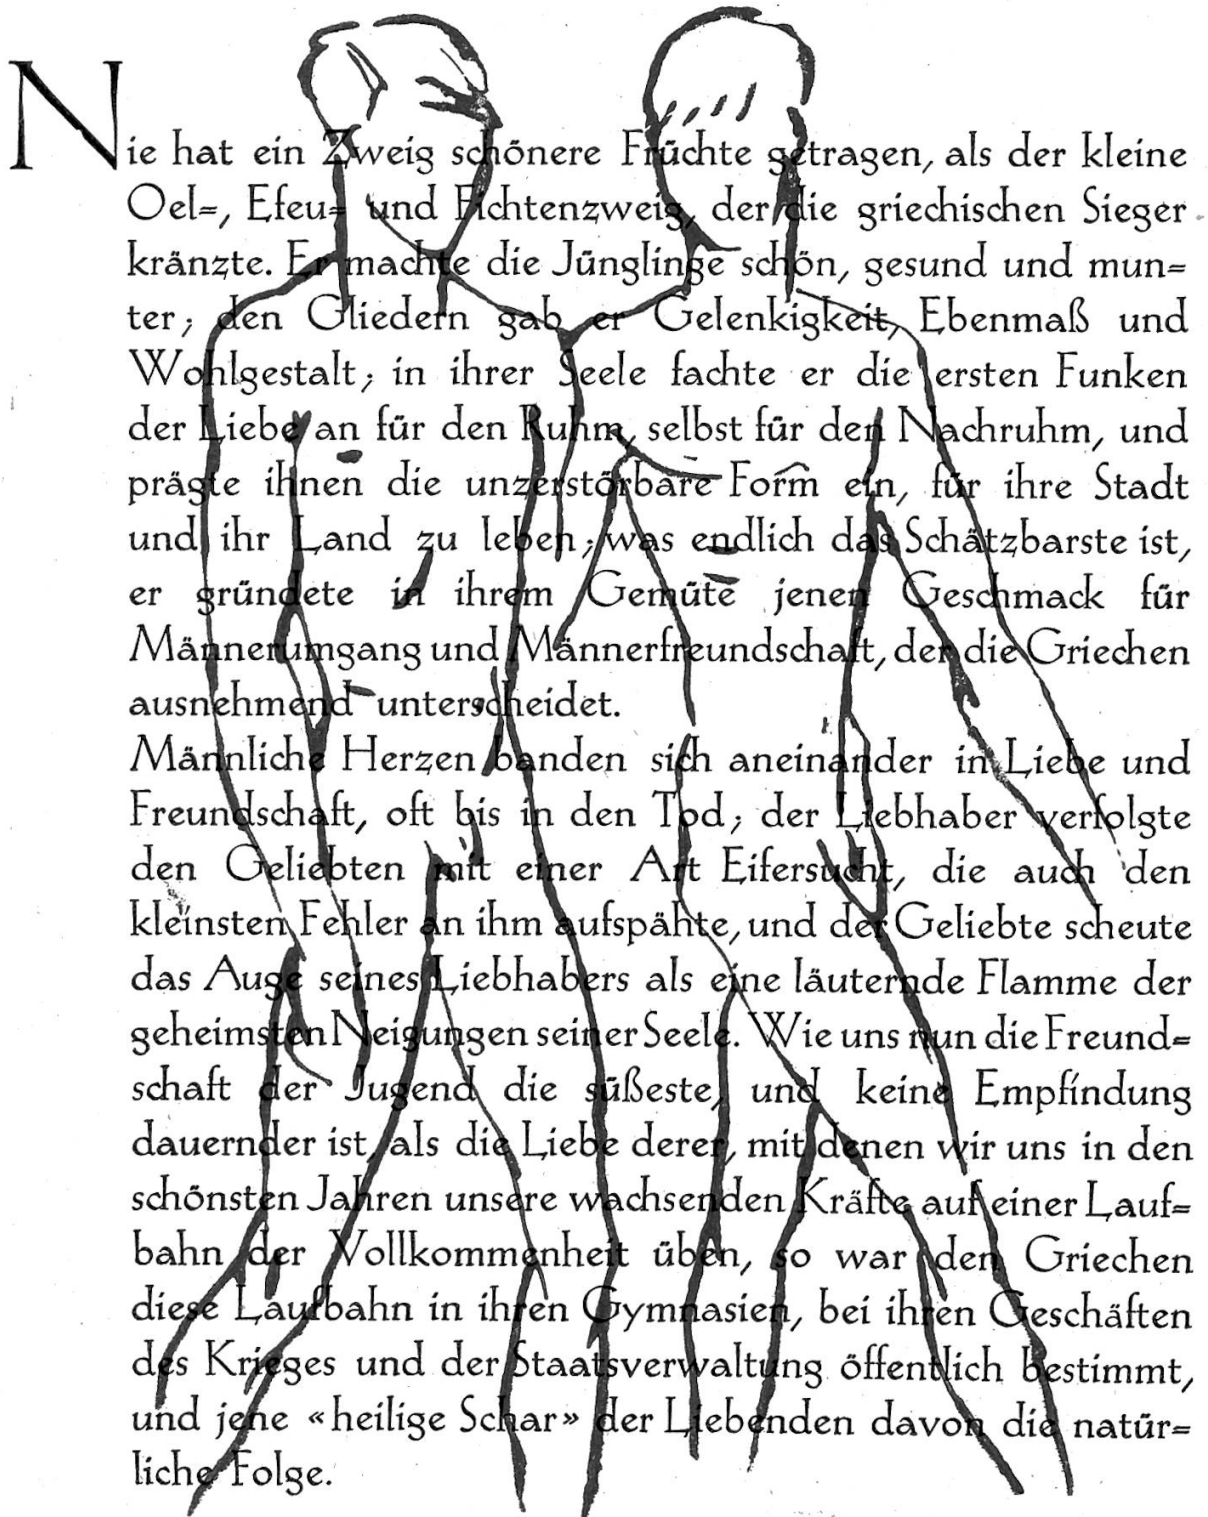 Nie hat ein Zweig schönere Früchte getragen, als der kleine
Oel=, Efeu= und Fichtenzweig, der die griechischen Sieger
kränzte. Er machte die Jünglinge schön, gesund und mun=
ter; den Gliedern gab er Gelenkigkeit, Ebenmaß und
Wohlgestalt; in ihrer Seele fachte er die ersten Funken
der Liebe an für den Ruhm, selbst für den Nachruhm, und
prägte ihnen die unzerstörbare Form ein, für ihre Stadt
und ihr Land zu leben; was endlich das Schätzbarste ist,
er gründete in ihrem Gemüte jenen Geschmack für
Männerumgang und Männerfreundschaft, der die Griechen
ausnehmend unterscheidet.
Männliche Herzen banden sich aneinander in Liebe und
Freundschaft, oft bis in den Tod; der Liebhaber verfolgte
den Geliebten mit einer Art Eifersucht, die auch den
kleinsten Fehler an ihm aufspähte, und der Geliebte scheute
das Auge seines Liebhabers als eine läuternde Flamme der
geheimsten Neigungen seiner Seele. Wie uns nun die Freund=
schaft der Jugend die süßeste, und keine Empfindung
dauernder ist, als die Liebe derer, mit denen wir uns in den
schönsten Jahren unsere wachsenden Kräfte auf einer Lauf=
bahn der Vollkommenheit üben, so war den Griechen
diese Laufbahn in ihren Gymnasien, bei ihren Geschäften
des Krieges und der Staatsverwaltung öffentlich bestimmt,
und jene «heilige Schar» der Liebenden davon die natür=
liche Folge.